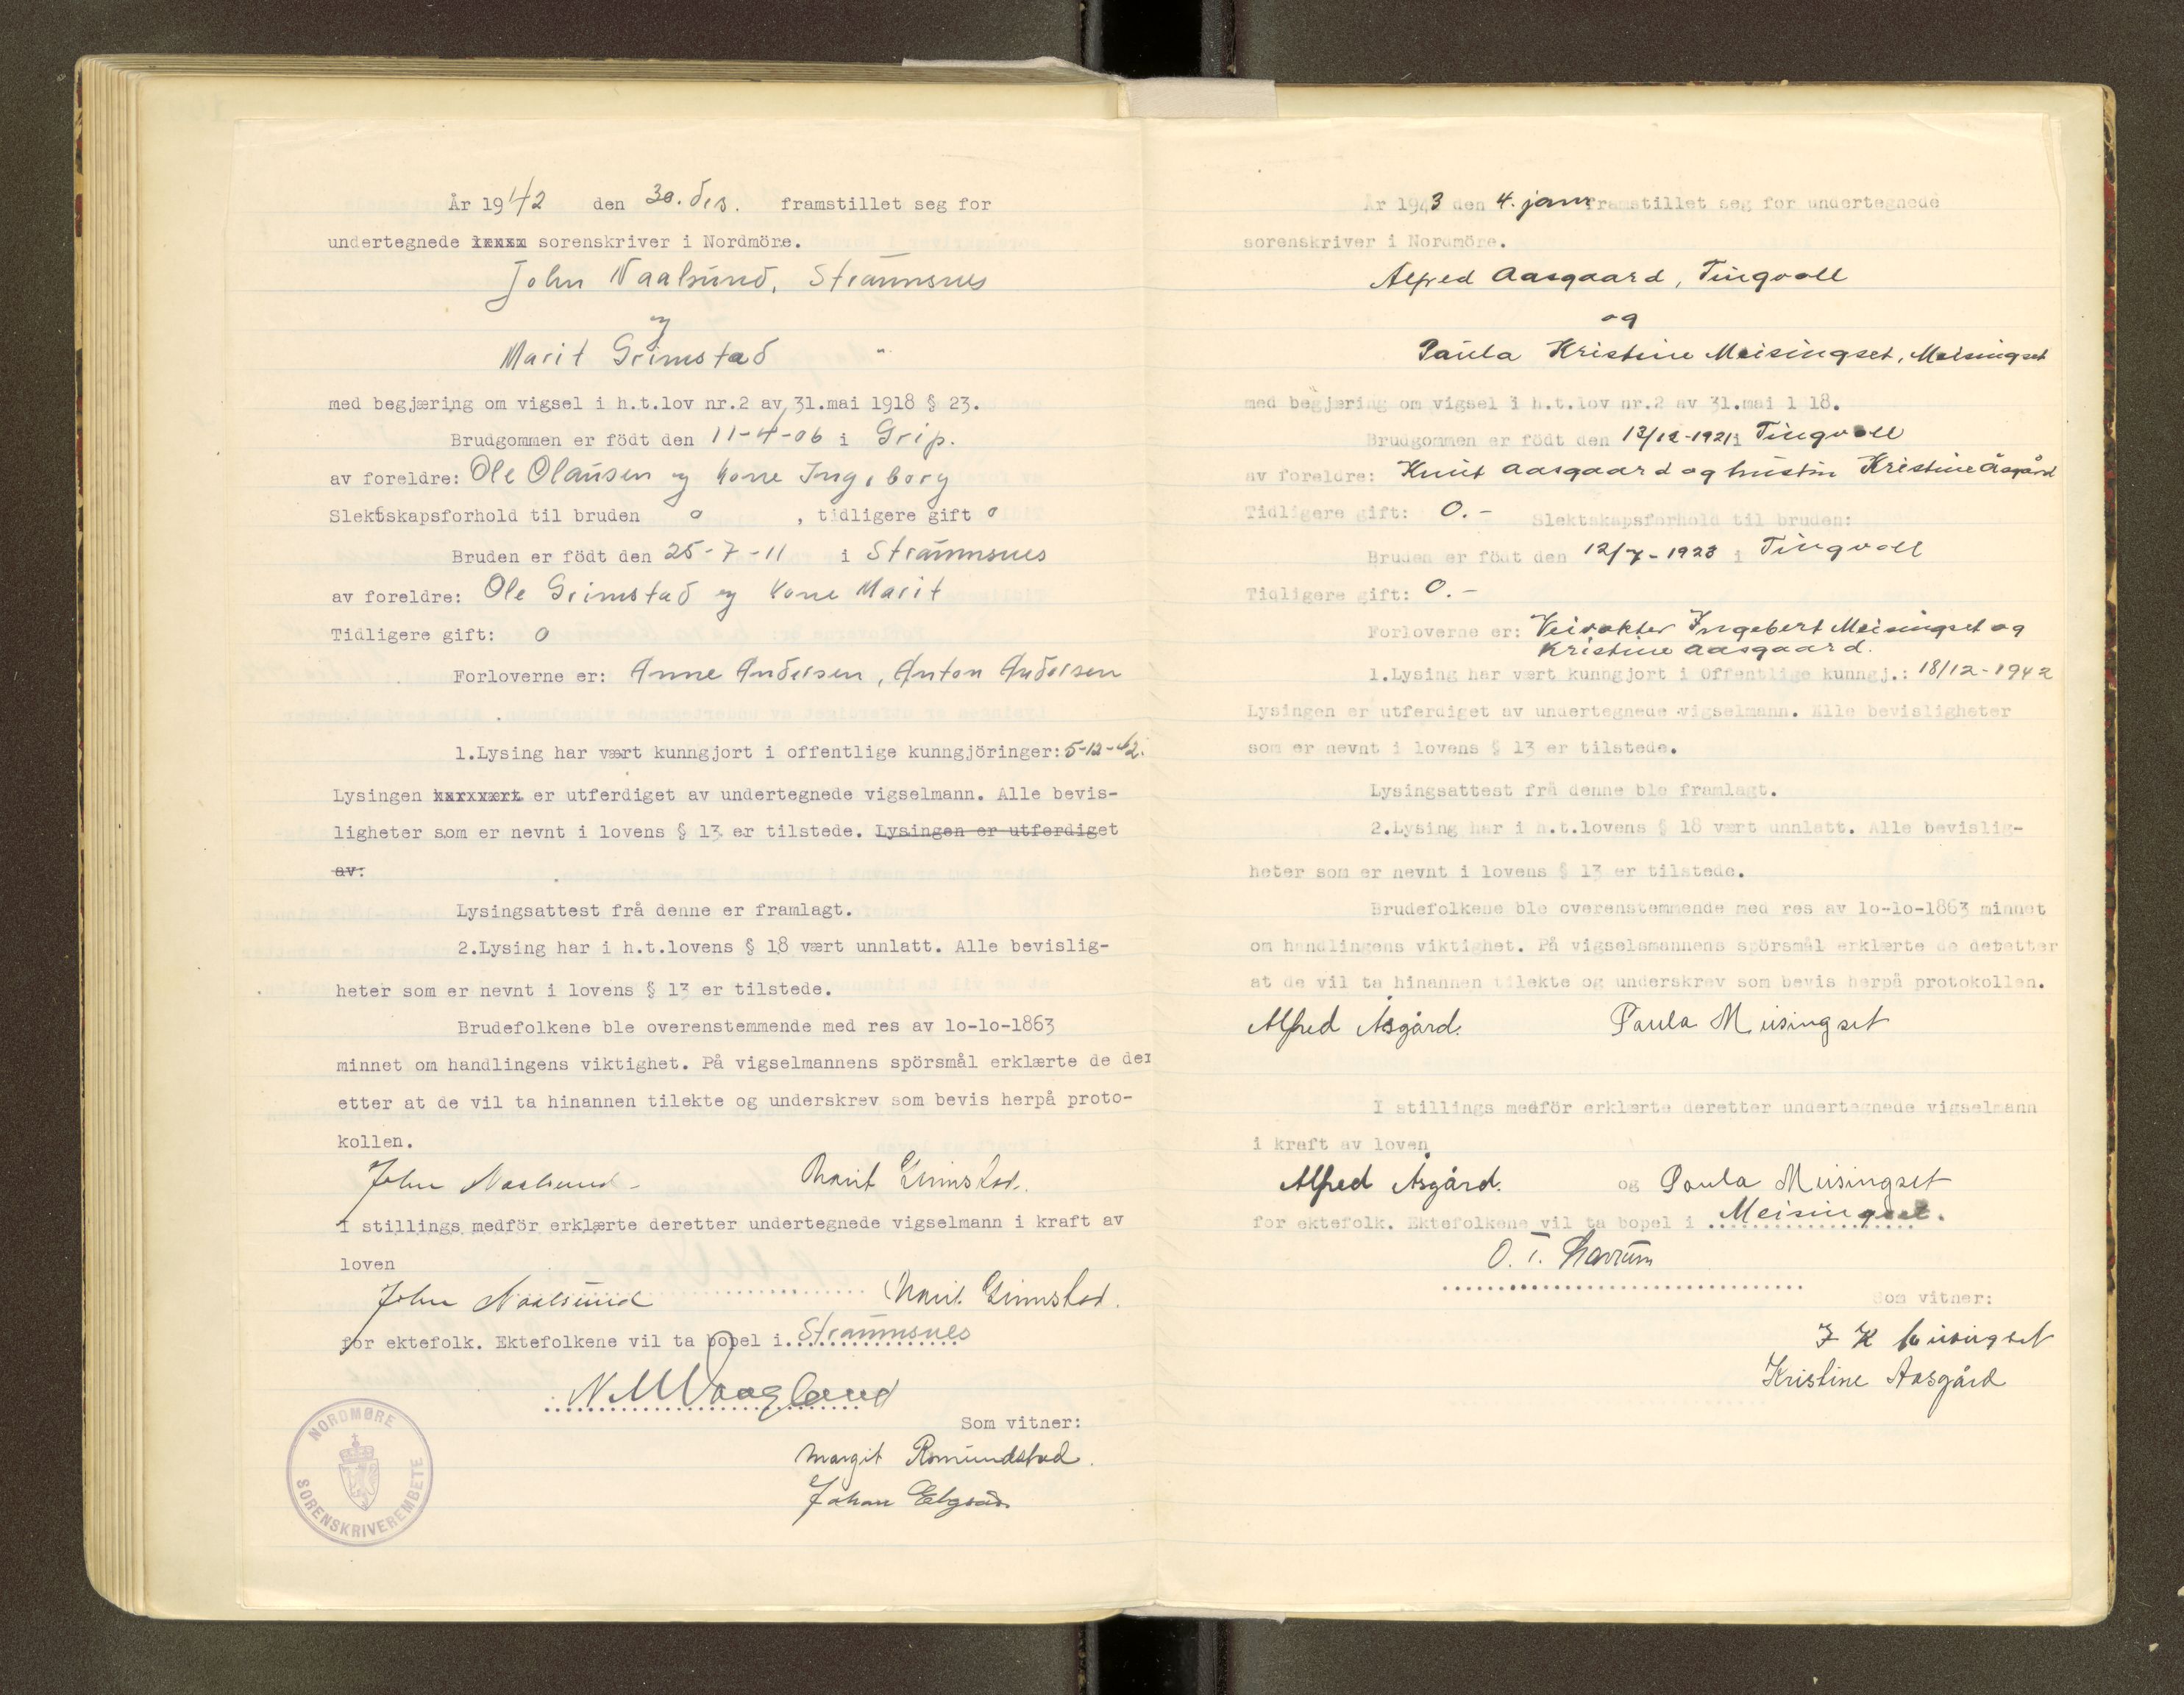 År 1942 den 30. des. framstillet seg for
undertegnede sorenskriver i Nordmöre.
John Naalsund, Straumsnes
og
Marit Grimstad "
med begjæring om vigsel i h.t.lov nr.2 av 31.mai 1918 § 23.
Brudgommen er födt den 11-4-06 i Grip.
av foreldre: Ole Olausen og kone Ingeborg
Slektskapsforhold til bruden o , tidligere gift o
Bruden er födt den 25-7-11 i Straumsnes
av foreldre: Ole Grimstad og kone Marit
Tidligere gift: o
Forloverne er: Anne Andersen, Anton Andersen
1.Lysing har vært kunngjort i offentlige kunngjöringer: 5-12-42.
Lysingen er utferdiget av undertegnede vigselmann. Alle bevis-
ligheter som er nevnt i lovens § 13 er tilstede. Lysingen er utferdiget
av:
Lysingsattest frå denne er framlagt.
2.Lysing har i h.t.lovens § 18 vært unnlatt. Alle bevislig-
heter som er nevnt i lovens § 13 er tilstede.
Brudefolkene ble overenstemmende med res av lo-lo-1863
minnet om handlingens viktighet. På vigselmannens spörsmål erklærte de der
etter at de vil ta hinannen tilekte og underskrev som bevis herpå proto-
kollen.
John Naalsund Marit Grimstad.
I stillings medför erklærte deretter undertegnede vigselmann i kraft av
loven
John Naalsund Marit Grimstad.
for ektefolk. Ektefolkene vil ta bopel i. Straumsnes
Som vitner:
Margit Romundstad.
Johan
NORDMØRE
SORENSKRIVEREMBETE
År 1943 den 4. jan. framstillet seg for undertegnede
sorenskriver i Nordmöre.
Alfred Aasgaard, Tingvoll
og
Paula Kristine Meisingset, Meisingset
med begjæring om vigsel i h.t.lov nr.2 av 31.mai 1 18.
Brudgommen er födt den 13/12-1921 i Tingvoll
av foreldre: Knut Aasgaard og hustru Kristine Åsgård
Tidligere gift: O.- Slektskapsforhold til bruden:
Bruden er födt den 12/7-1923 i Tingvoll
Tidligere gift: O.-
Forloverne er: Veivokter Ingebert Meisingset og
Kristine Aasgaard.
1.Lysing har vært kunngjort i Offentlige kunngj.: 18/12-1942
Lysingen er utferdiget av undertegnede vigselmann. Alle bevisligheter
som er nevnt i lovens § 13 er tilstede.
Lysingsattest frå denne ble framlagt.
2.Lysing har i h.t.lovens § 18 vært unnlatt. Alle bevislig-
heter som er nevnt i lovens § 13 er tilstede.
Brudefolkene ble overenstemmende med res av lo-lo-1863 minnet
om handlingens viktighet. På vigselsmannens spörsmål erklærte de deretter
at de vil ta hinannen tilekte og underskrev som bevis herpå protokollen.
Alfred Åsgård. Paula Meisingset
I stillings medför erklærte deretter undertegnede vigselmann
i kraft av loven
Alfred Åsgård. og Paula Meisingset
for ektefolk. Ektefolkene vil ta bopel i Meisingset.
O. T.
Som vitner:
I K Meisingset
Kristine Aasgård